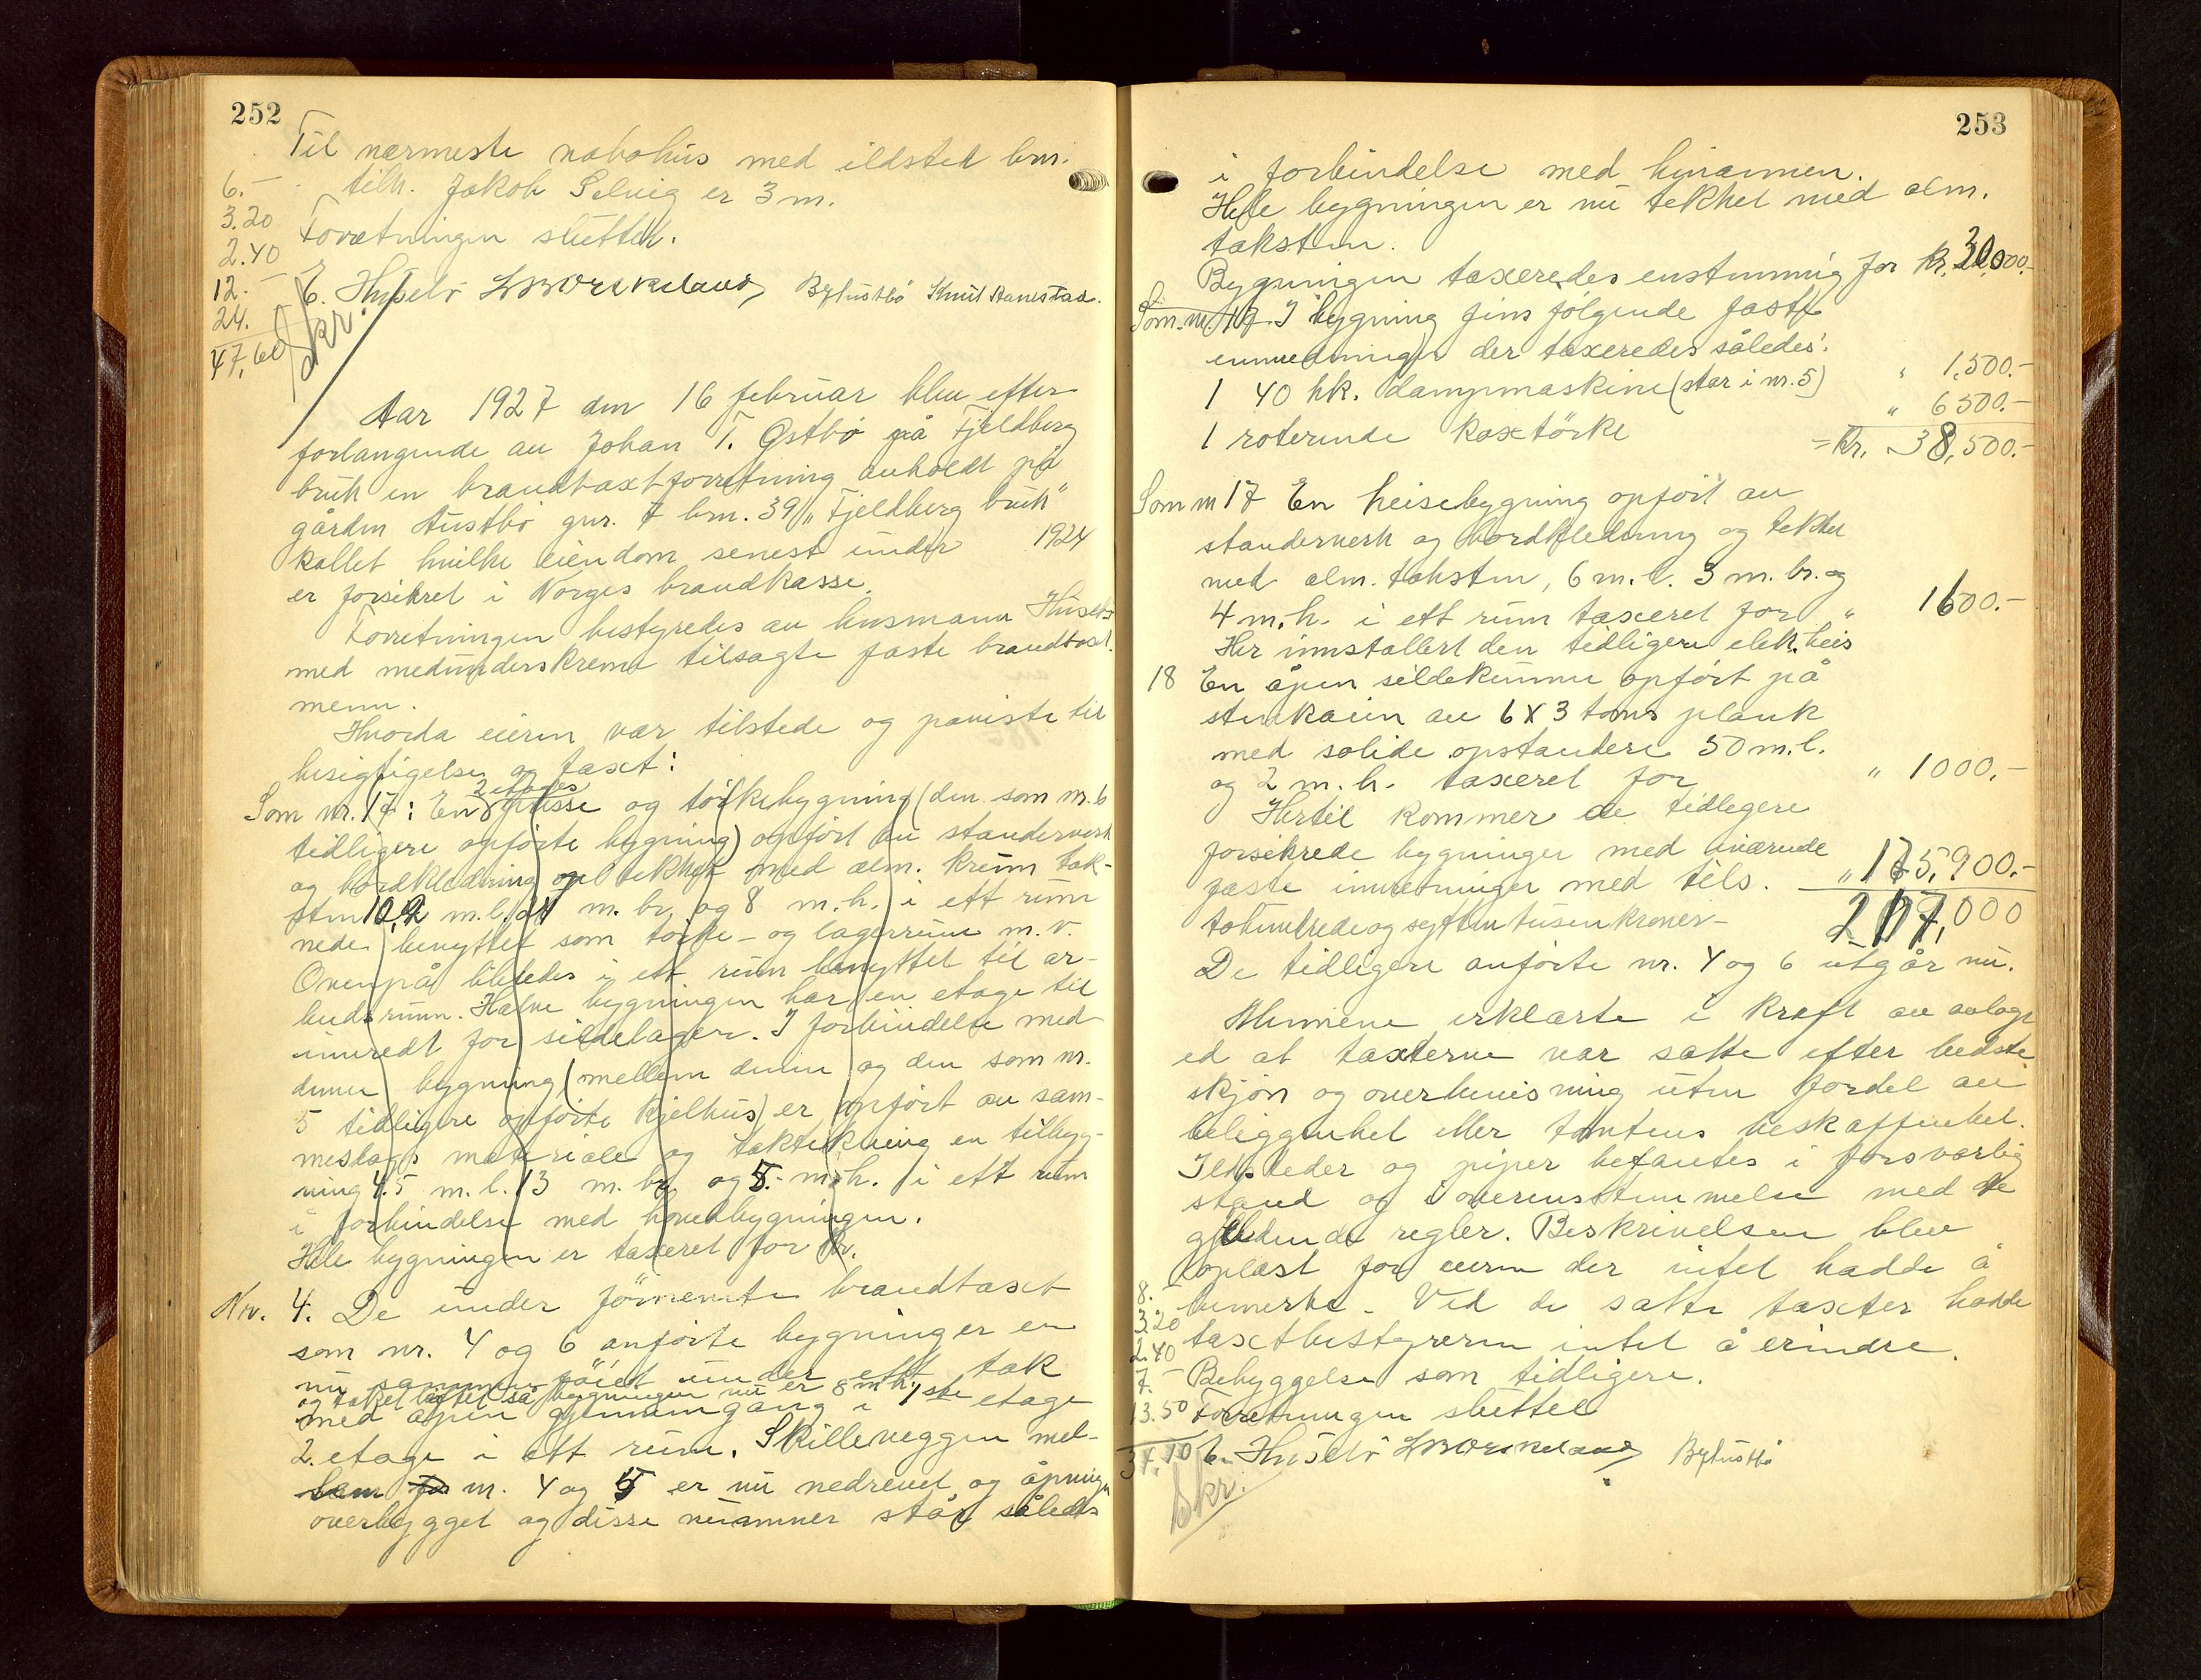 252
Til nærmeste nabohus med ildsted brn.
6.-
tilh. Jakob Selvig er 3 m.
3.20
Forretningen sluttet.
2.40
12.-
E. Huselø Byaustbø Knut Hanestad.
24.
47,60
Skr.
Aar 1927 den 16 februar blev efter
forlangende av Johan T. Østbø på Fjeldberg
bruk en brandtaxtforretning avholdt på
gården Austbø gnr. 7 brn. 39 „Fjeldberg bruk"
kallet hvilke eiendom senest under 1924
er forsikret i Norges brandkasse.
Forretningen bestyredes av lensmann Huselø
med medunderskrevne tilsagte faste brandtaxt.
menn.
Hvorda eieren var tilstede og paviste til
besigtigelse og taxt:
Som nr. 17: En 2 etages presse og tørkebygning (den som nr. 6
tidligere opførte bygning) opført av standerverk
og bordklædning og tekket med alm. krum tak-
sten 10,2 m.l. m. br. og 8 m.h. i ett rum
nede benyttet som tørke- og lagerrum m.v.
Ovenpå likeledes i ett rum benyttet til ar-
beidsrum. Halve bygningen har en etage til
innredt for sildelager. I forbindelse med
denne bygning (mellem denne og den som nr.
5 tidligere opførte kjelhus) er opført av sam-
meslags materiale og taktekning en tilbyg-
ning 4.5 m.l. 13 m. br. og 5.- m.h. i ett rum
i forbindelse med hovedbygningen.
Hele bygningen er taxeret for kr.
Nr. 4. De under førnevnte brandtaxt
som nr. 4 og 6 anførte bygninger er
nu sammenføiet under ett tak
og taket løftet så bygningen nu er 8 m h.
med åpen gjennemgang i 1ste etage
2. etage i ett rum. Skilleveggen mel-
lem nr. 4 og 5 er nu nedrevet og åpningen
overbygget og disse nummer står således
253
i forbindelse med hinannen.
Hele bygningen er nu tekket med alm.
taksten.
Bygningen taxeredes enstemmig for kr. 30,000.-
Som nr. 17. I bygning fins følgende faste
innredninger der taxeredes således:
1 40 hk. dampmaskine (står i nr. 5) " 1,500.-
1 roterende koxtørke " 6500.-
= Kr. 38,500.-
Som nr 17 En heisebygning opført av
standerverk og bordkledning og tekket
med alm. taksten, 6 m.l. 3 m. br. og
4 m.h. i ett rum taxeret for " 1600.-
Her innstallert den tidligere elek. heis
18 En åpen sildekumme opført på
stenkaien av 6 X 3 toms plank
med solide opstandere 50 m.l.
og 2 m.h. taxeret for " 1000.-
Hertil kommer de tidligere
forsikrede bygninger med iværende
faste innretninger med tils. " 175,900.-
tohundredeogsytten tusen kroner- 217,000
De tidligere anførte nr. 4 og 6 utgår nu.
Mennene erklærte i kraft av avlagt
ed at taxterne var satte efter bedste
skjøn og overbevisning uten fordel av
beliggenhet eller tomtens beskaffenhet.
Ildsteder og piper befantes i forsvarlig
stand og i overensstemmelse med de
gjeldende regler. Beskrivelsen blev
oplæst for eieren der intet hadde å
8.-
bemerke. Ved de satte taxter hadde
3.20
taxtbestyreren intet å erindre.
2.40
Bebyggelse som tidligere.
7.-
13.50 Forretningen sluttet
37,10 E. Huselø Byaustbø
Skr.